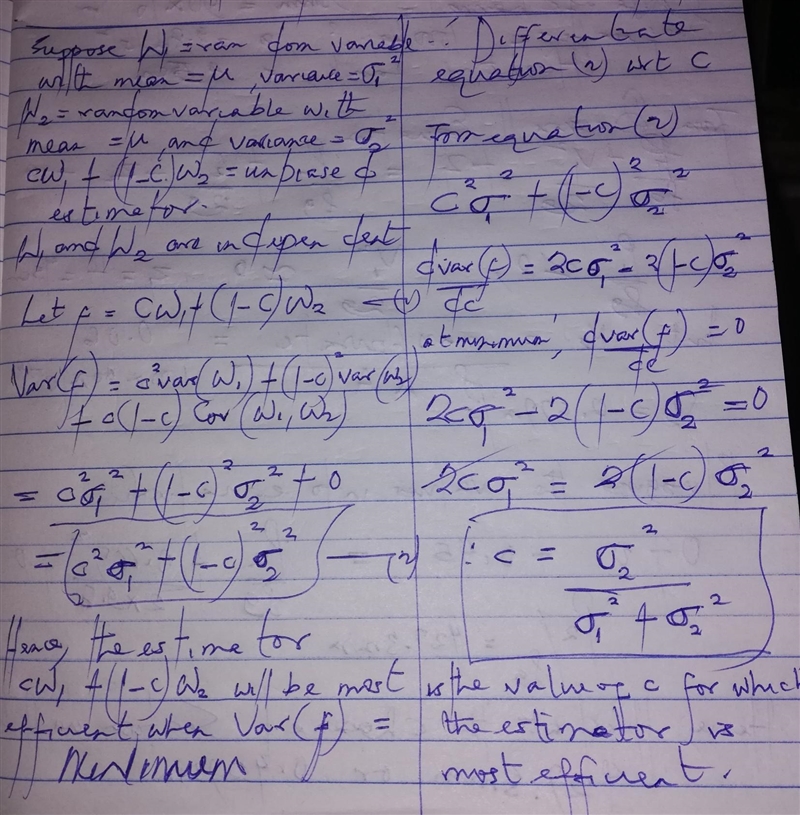 Suppose W₁ = random variable
with mean = μ, variance = σ₁²
W₂ = random variable with
mean = μ, and variance = σ₂²
cW₁ + (1-c)W₂ = unbiased
estimator.
W₁ and W₂ are independent
Let f = cW₁ + (1-c)W₂ —(1)
Var(f) = c²var(W₁) + (1-c)²var(W₂)
+ c(1-c) Cov(W₁, W₂)
= c²σ₁² + (1-c)²σ₂² + 0
= c²σ₁² + (1-c)²σ₂² —(2)
Hence, the estimator
cW₁ + (1-c)W₂ will be most
efficient when Var(f) =
Minimum
∴ Differentiate
equation (2) wrt c
From equation (2)
c²σ₁² + (1-c)²σ₂²
dvar(f)/dc = 2cσ₁² - 2(1-c)σ₂²
at minimum, dvar(f)/dc = 0
2cσ₁² - 2(1-c)σ₂² = 0
2cσ₁² = 2(1-c)σ₂²
∴ c = σ₂²/(σ₁² + σ₂²)
is the value of c for which
the estimator is
most efficient.